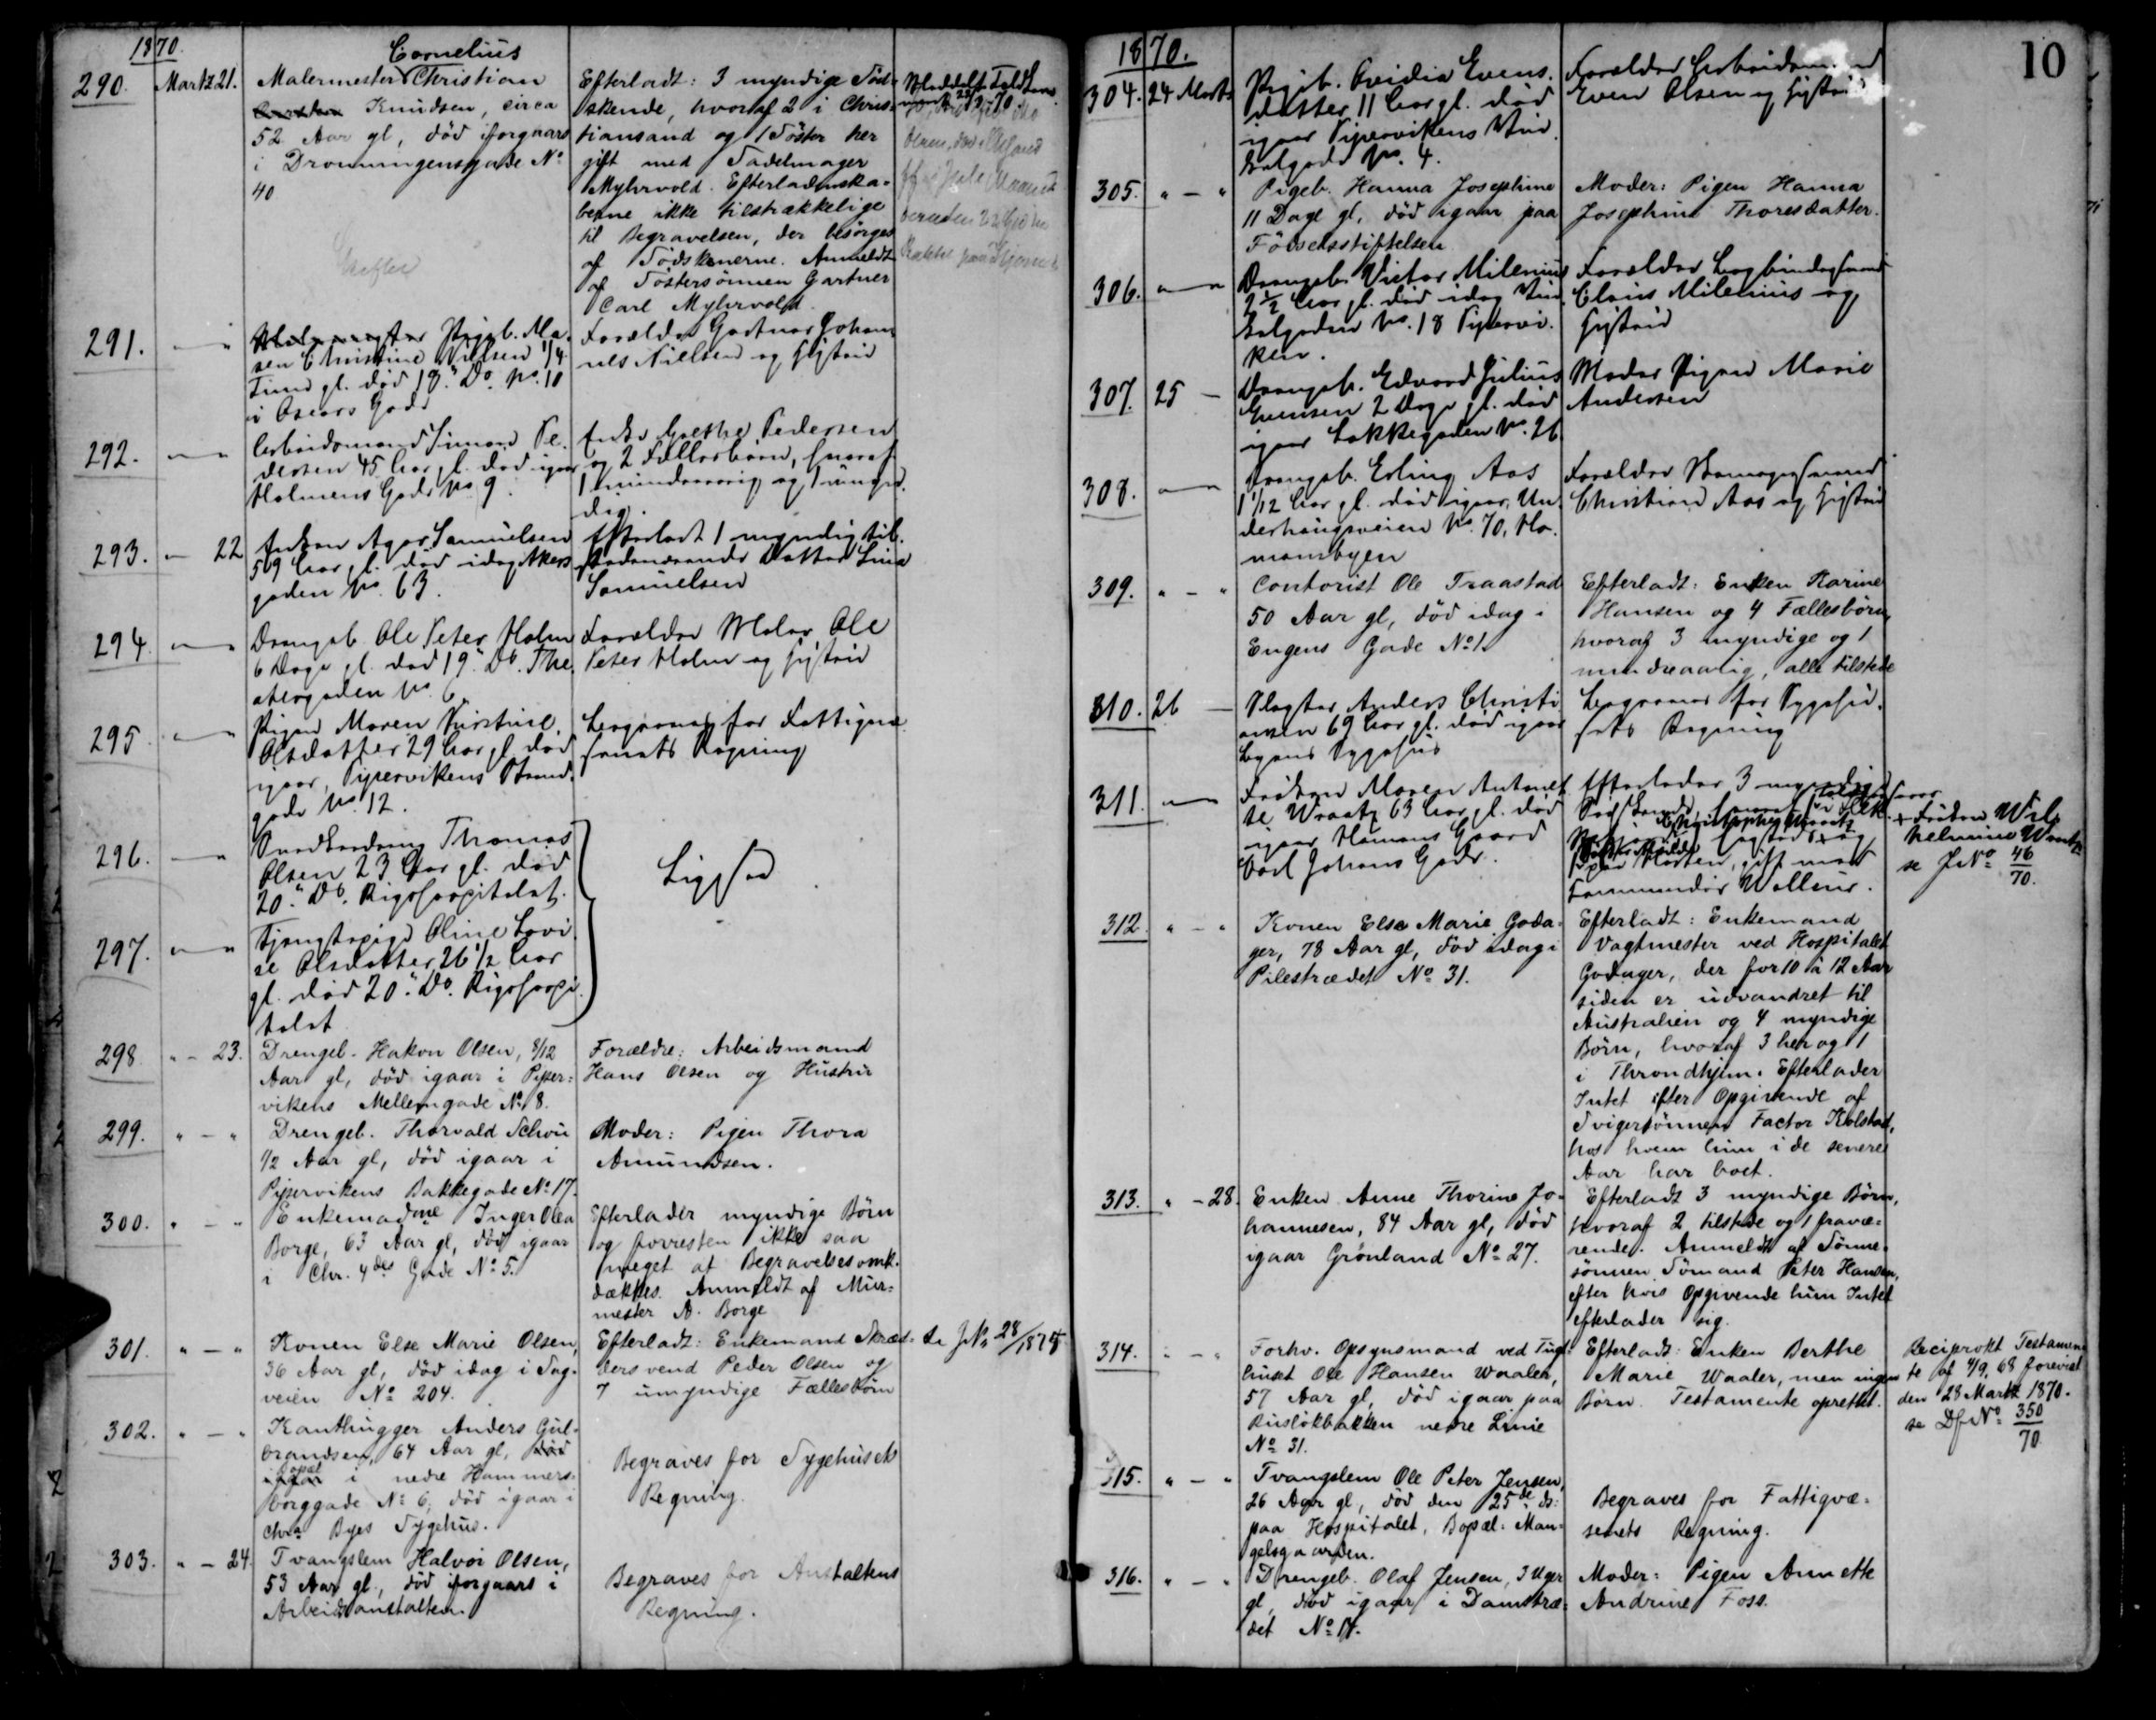 1870.
290. Martz 21. Malermester Cornelius Christian
Knudsen, circa
52 Aar gl, død iforgaars
i Dronningensgade No
40
Efterladt: 3 myndige Sød-
skende, hvoraf 2 i Chris-
tiansand og 1 Søster her
gift med Sadelmager
Myhrvold. Efterladenska-
berne ikke tilstrækkelige
til Begravelsen, der besørges
af Sødsknerne. Anmeldt
af Søstersønnen Gartner
Carl Myhrvold.
291. Pigeb. Ma-
ren Christine Nielsen 1/4
Time gl. død 18. Do. No. 10
i Oscars Gade
Forældre Gartner Johan-
nes Nielsen og Hustru
292. Arbeidsmand Simon Pe-
dersen 45 Aar gl. død igaar
Holmens Gade No 9.
Enke Grethe Pedersen
og 2 Fællesbørn, hvoraf
1 mindreaarig og 1 umyn-
dig.
293. - 22 Enken Agar Samuelsen
59 Aar gl. død idag Akers
gaden No. 63.
Efterladt 1 myndig til-
stedeværende Datter Lina
Samuelsen
294. Drengeb. Ole Peter Holm
6 Dage gl. død 19. Do. The-
atergaden No. 6
Forældre Maler Ole
Peter Holm og Hustru
295. Pigen Maren Kirstine
Olsdatter 29 Aar gl. død
igaar, Pipervikens Strand-
gade No. 12.
Begraves for Fattigvæ-
senets Regning
296. Thomas
Olsen 23 Aar gl. død
20. Do. Rigshospitalet.
297. Tjenestepige Oline Lovi-
se Olsdatter 26 1/2 Aar
gl. død 20. Do. Rigshospi-
talet
298. " - 23. Drengeb. Hakon Olsen, 8/12
Aar gl, død igaar i Piper-
vikens Mellemgade No 8.
Forældre: Arbeidsmand
Hans Olsen og Hustru
299. " - " Drengeb. Thorvald Schou
1/2 Aar gl, død igaar i
Pipervikens Bakkegade No 17.
Moder: Pigen Thora
Amundsen.
300. " - " Enkemadme Inger Olea
Borge, 63 Aar gl, død igaar
i Chr. 4des Gade No 5.
Efterlader myndige Børn
og forresten ikke saa
meget at Begravelsesomk.
dækkes. Anmeldt af Mur-
mester A. Borge
301. " - " Konen Else Marie Olsen,
36 Aar gl, død idag i Sag-
veien No 204.
Efterladt: Enkemand Skræd-
dersvend Peder Olsen og
7 umyndige Fællesbørn
se J No 28/1874
302. " - " Kanthugger Anders Gul-
brandsen, 64 Aar gl, død
igaar Bopæl i nedre Hammers-
borggade No 6, død igaar i
Chra Byes Sygehus.
Begraves for Sygehusets
Regning.
303. " - 24. Tvangslem Halvor Olsen,
53 Aar gl., død iforgaars i
Arbeidsanstalten.
Begraves for Anstaltens
Regning.
10
1870.
304. 24 Marts Pigeb. Ovidia Evens-
datter 11 Aar gl. død
igaar Pipervikens Vin-
kelgade No. 4.
Forældre Arbeidsmand
Even Olsen og Hustru
305. " - " Pigeb. Hanna Josephine
11 Dage gl, død igaar paa
Fødselsstiftelsen
Moder: Pigen Hanna
Josephine Thoresdatter.
306. Drengeb. Victor Milenius
2 1/2 Aar gl. død idag Vin-
kelgaden No. 18 Pipervi-
ken.
Forældre Bogbindersvend
Claus Milenius og
Hustru
307. 25 - Drengeb. Edvard Julius
Evensen 2 Dage gl. død
igaar Løkkegaden No. 26
Moder Pigen Marie
Andersen
308. Drengeb. Erling Aas
1 1/12 Aar gl. død igaar, Un-
derhaugsveien No. 70, Ho-
mansbyen
Forældre
Christian Aas og Hustru
309. " - " Contorist Ole Traastad
50 Aar gl, død idag i
Engens Gade No 1.
Efterladt: Enken Karine
Hansen og 4 Fællesbørn,
hvoraf 3 myndige og 1
mindreaarig, alle tilstede
310. 26 - Slagter Anders Christi-
ansen 69 Aar gl. død igaar
Byens Sygehus
Begraves for Sygehu-
sets Regning
311. Frøken Maren Antonet-
te Wraatz 63 Aar gl. død
igaar Hamans Gaard
Carl Johans Gade.
Efterlader 3 myndige
Horten, gift med
Commandør Wolleur.
+ Frøken Wil-
helmine Wraatz
se J No 46/70.
312. " - " Konen Else Marie Goda-
ger, 78 Aar gl, død idag i
Pilestrædet No 31.
Efterladt: Enkemand
Vagtmester ved Hospitalet
Godager, der for 10 à 12 Aar
siden er udvandret til
Australien og 4 myndige
Børn, hvoraf 3 her og 1
i Throndhjem. Efterlader
Intet efter Opgivende af
Svigersønnen Factor Kolstad,
hos hvem hun i de senere
Aar har boet.
313. " - 28. Enken Anne Thorine Jo-
hannesen, 84 Aar gl, død
igaar Grønland No 27.
Efterladt 3 myndige Børn,
hvoraf 2 tilstede og 1 fravæ-
rende. Anmeldt af Sønne-
sønnen Sømand Peter Hansen,
efter hvis Opgivende hun Intet
efterlader sig.
314. " - " Forhv. Opsynsmand ved Tugt-
huset Ole Hansen Waaler,
57 Aar gl, død igaar paa
Ruseløkbakken nedre Linie
No 31.
Efterladt: Enken Berthe
Marie Waaler, men ingen
Børn. Testamente oprettet.
Reciprokt Testamen-
te af 4/9 68 forevist
den 28 Martz 1870.
se Df No 350/70
315. " - " Tvangslem Ole Peter Jensen,
26 Aar gl, død den 25de ds:
paa Hospitalet, Bopæl: Man-
gelsgaarden.
Begraves for Fattigvæ-
senets Regning.
316. " - " Drengeb. Olaf Jensen, 3 Uger
gl, død igaar i Damstræ-
det No 17.
Moder: Pigen Annette
Andrine Foss.